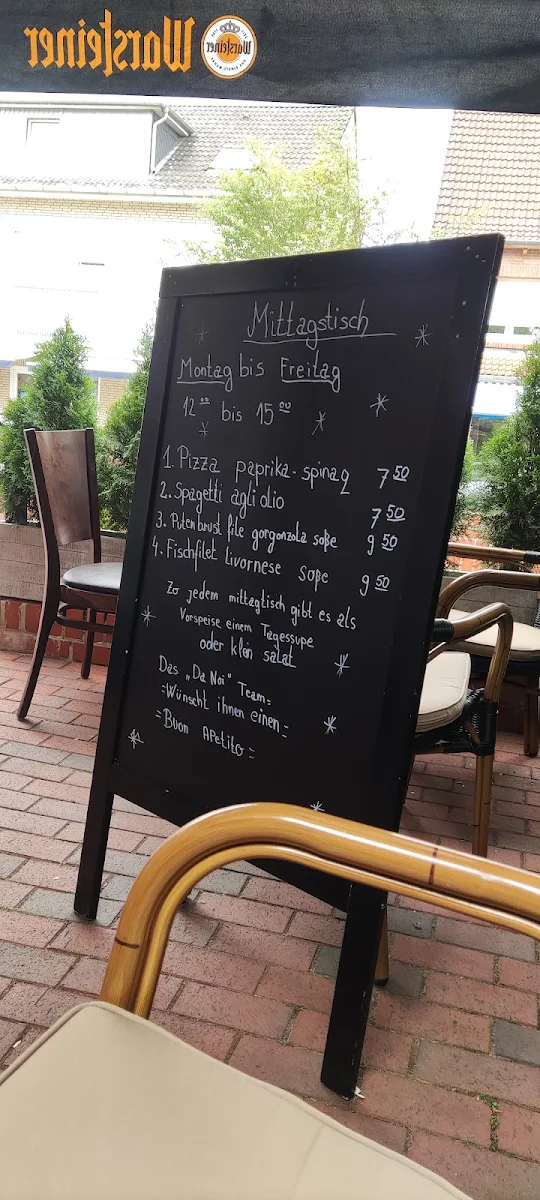 Warsteiner
Warsteiner
Mittagstisch
Montag bis Freitag
12⁰⁰ bis 15⁰⁰
1. Pizza paprika-spinaq 7⁵⁰
2. Spagetti agli olio 7⁵⁰
3. Putenbrust file gorgonzola soße 9⁵⁰
4. Fischfilet Livornese soße 9⁵⁰
Zo jedem mittagtisch gibt es als
Vorspeise einem Tagessupe
oder klein salat
Das „Da Noi" Team=
=Wünscht ihnen einen=
=Buon APetito=